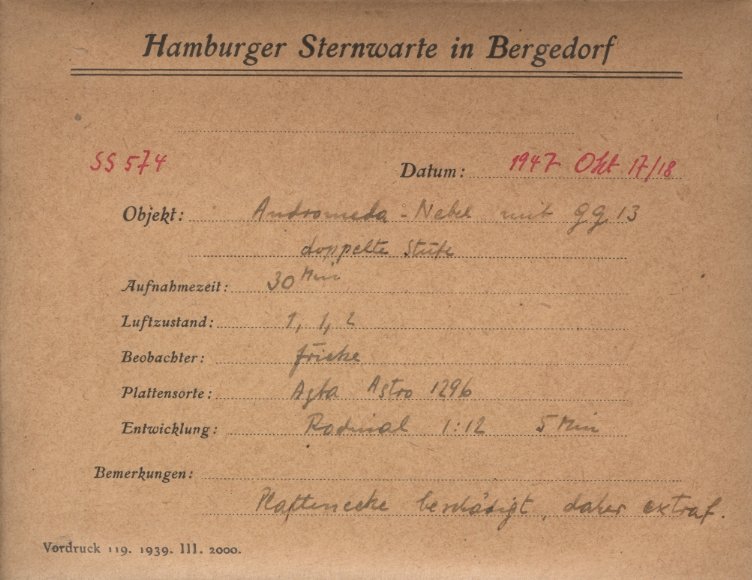 Hamburger Sternwarte in Bergedorf
SS 574 Datum: 1947 Okt 17/18
Objekt: Andromeda-Nebel mit GG 13
doppelte Stufe
Aufnahmezeit: 30 Min
Luftzustand: 1, 1, 2
Beobachter: Fricke
Plattensorte: Agfa Astro 1296
Entwicklung: Rodinal 1:12 5 Min
Bemerkungen:
Plattenecke beschädigt, daher extraf.
Vordruck 119. 1939. III. 2000.